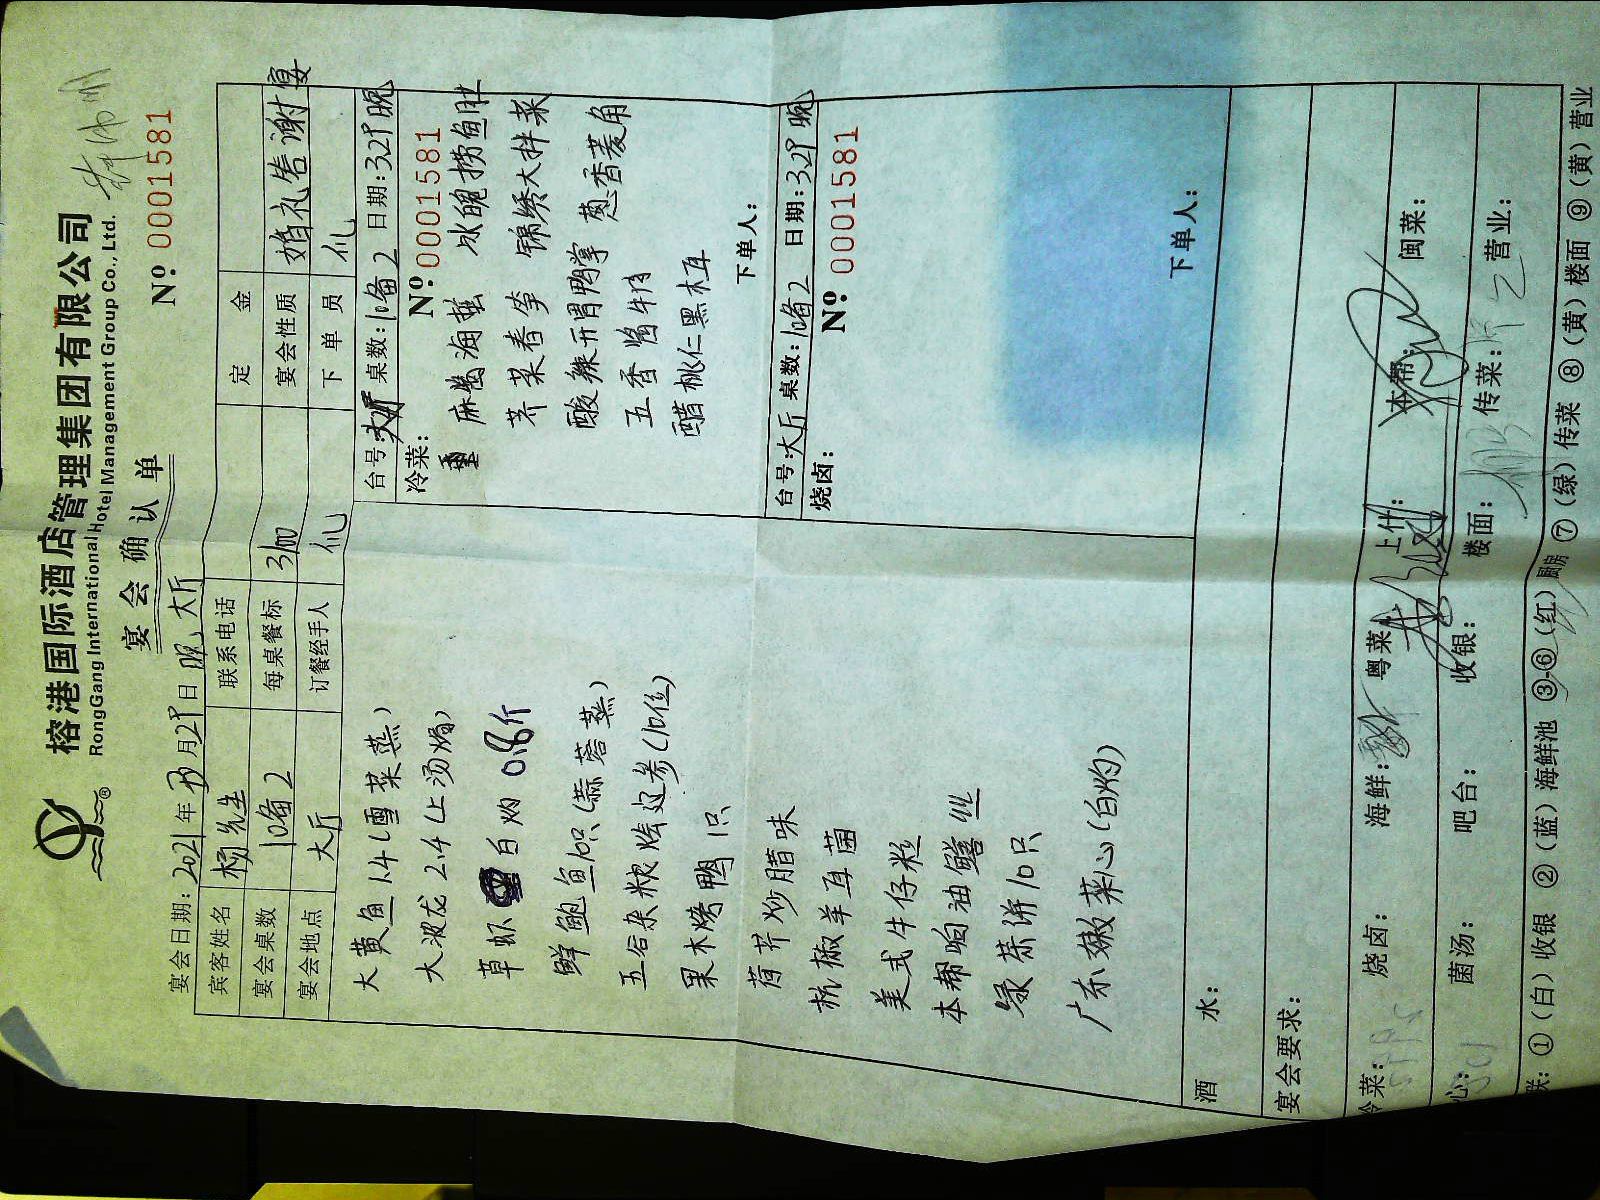 榕港国际酒店管理集团有限公司
RongGang International Hotel Management Group Co., Ltd.
宴会确认单
№ 0001581
宴会日期: 2021年 月 日 晚 大厅
宾客姓名 杨先生 联系电话 定金
宴会桌数 10备2 每桌餐标 宴会性质 婚礼答谢宴
宴会地点 大厅 订餐经手人 下单员
大黄鱼1.4(雪菜蒸)
大波龙2.4(上汤焗)
草虾 白灼 0.8斤
鲜鲍鱼10只(蒜蓉蒸)
五谷杂粮烩辽参(10位)
果木烤鸭1只
荷芥炒腊味
杭椒羊耳菌
美式牛仔粒
本帮响油鳝丝
绿茶饼10只
广东嫩菜心(白灼)
台号: 桌数:10备2 日期:3.29晚
冷菜: № 0001581
麻酱海蜇 冰魄捞鱼肚
荠菜春笋 锦绣大拌菜
酸辣开胃鸭掌 葱香菱角
五香酱牛肉
醋桃仁黑木耳
下单人:
台号:大厅 桌数:10备2 日期:3.29晚
烧卤: № 0001581
下单人:
酒水:
宴会要求:
冷菜: 烧卤: 海鲜: 粤菜: 上什: 本帮: 闽菜:
心: 菌汤: 吧台: 收银: 楼面: 传菜: 营业:
联: ①(白)收银 ②(蓝)海鲜池 ③-⑥(红)厨房 ⑦(绿)传菜 ⑧(黄)楼面 ⑨(黄)营业